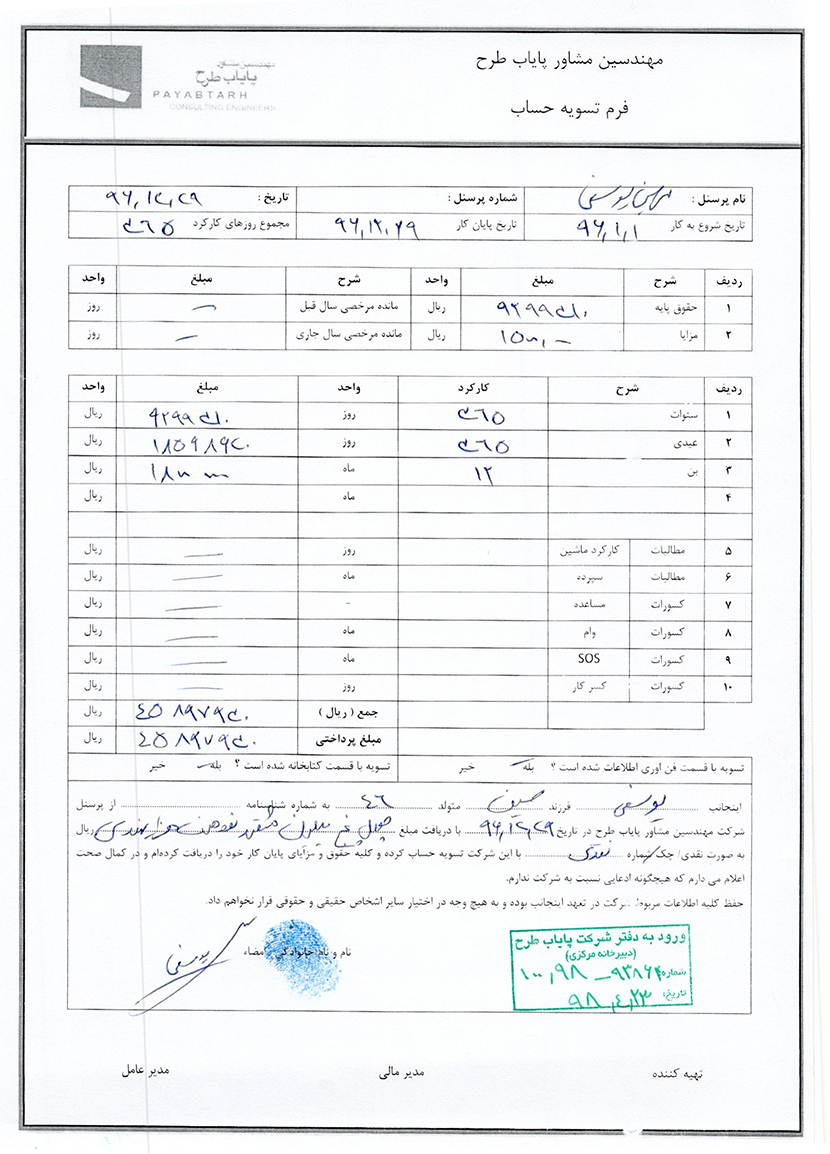 مهندسین مشاور پایاب طرح
فرم تسویه حساب
مهندسین مشاور
پایاب طرح
PAYABTARH
CONSULTING ENGINEERS
نام پرسنل : یوسفی شماره پرسنل : تاریخ : ۹۶,۱۲,۲۹
تاریخ شروع به کار ۹۶,۱,۱ تاریخ پایان کار ۹۶,۱۲,۲۹ مجموع روزهای کارکرد ۳۶۵
ردیف شرح مبلغ واحد شرح مبلغ واحد
۱ حقوق پایه ریال مانده مرخصی سال قبل — روز
۲ مزایا ریال مانده مرخصی سال جاری — روز
ردیف شرح کارکرد واحد مبلغ واحد
۱ سنوات ۳۶۵ روز ریال
۲ عیدی ۳۶۵ روز ریال
۳ بن ۱۲ ماه ریال
۴ ماه ریال
۵ مطالبات کارکرد ماشین روز — ریال
۶ مطالبات سپرده ماه — ریال
۷ کسورات مساعده - — ریال
۸ کسورات وام ماه — ریال
۹ کسورات SOS ماه — ریال
۱۰ کسورات کسر کار روز — ریال
جمع ( ریال ) ریال
مبلغ پرداختی ریال
تسویه با قسمت فن آوری اطلاعات شده است ؟ بله خیر تسویه با قسمت کتابخانه شده است ؟ بله خیر
اینجانب یوسفی فرزند حسین متولد ۴۶ به شماره شناسنامه از پرسنل
شرکت مهندسین مشاور پایاب طرح در تاریخ ۹۶,۱۲,۲۹ با دریافت مبلغ ریال
به صورت نقدی/ چک شماره نقدی با این شرکت تسویه حساب کرده و کلیه حقوق و مزایای پایان کار خود را دریافت کرده‌ام و در کمال صحت
اعلام می دارم که هیچگونه ادعایی نسبت به شرکت ندارم.
حفظ کلیه اطلاعات مربوط شرکت در تعهد اینجانب بوده و به هیچ وجه در اختیار سایر اشخاص حقیقی و حقوقی قرار نخواهم داد.
نام و نام خانوادگی امضاء
یوسفی
ورود به دفتر شرکت پایاب طرح
(دبیرخانه مرکزی)
شماره: ۱۰۰,۹۸ – ۹۳۸۶۴
تاریخ: ۹۸,۴,۲۳
تهیه کننده مدیر مالی مدیر عامل